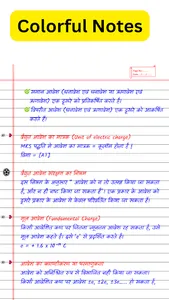 Colorful Notes
समान आवेश (धनावेश एवं धनावेश या ऋणावेश एवं
ऋणावेश) एक दूसरे को प्रतिकर्षित करते हैं।
विपरीत आवेश (धनावेश एवं ऋणावेश) एक दूसरे को आकर्षित
करते हैं।
वैद्युत आवेश का मात्रक (Unit of electric charge)
MKS पद्धति में आवेश का मात्रक = कूलॉम होता है।
विमा = [AT]
वैद्युत आवेश संरक्षण का नियम
इस नियम के अनुसार " आवेश को न तो उत्पन्न किया जा सकता
है, और न ही नष्ट किया जा सकता है।" एक प्रकार के आवेश को
दूसरे प्रकार के आवेश में केवल परिवर्तित किया जा सकता है।
मूल आवेश (Fundamental Charge)
किसी आवेशित कण पर जितना न्यूनतम आवेश हो सकता है, उसे
मूल आवेश कहते हैं। इसे 'e' से प्रदर्शित करते हैं।
आवेश का क्वाण्टीकरण या परमाणुकता
आवेश को अनिश्चित रूप से विभाजित नहीं किया जा सकता।
किसी आवेशित कण पर आवेश